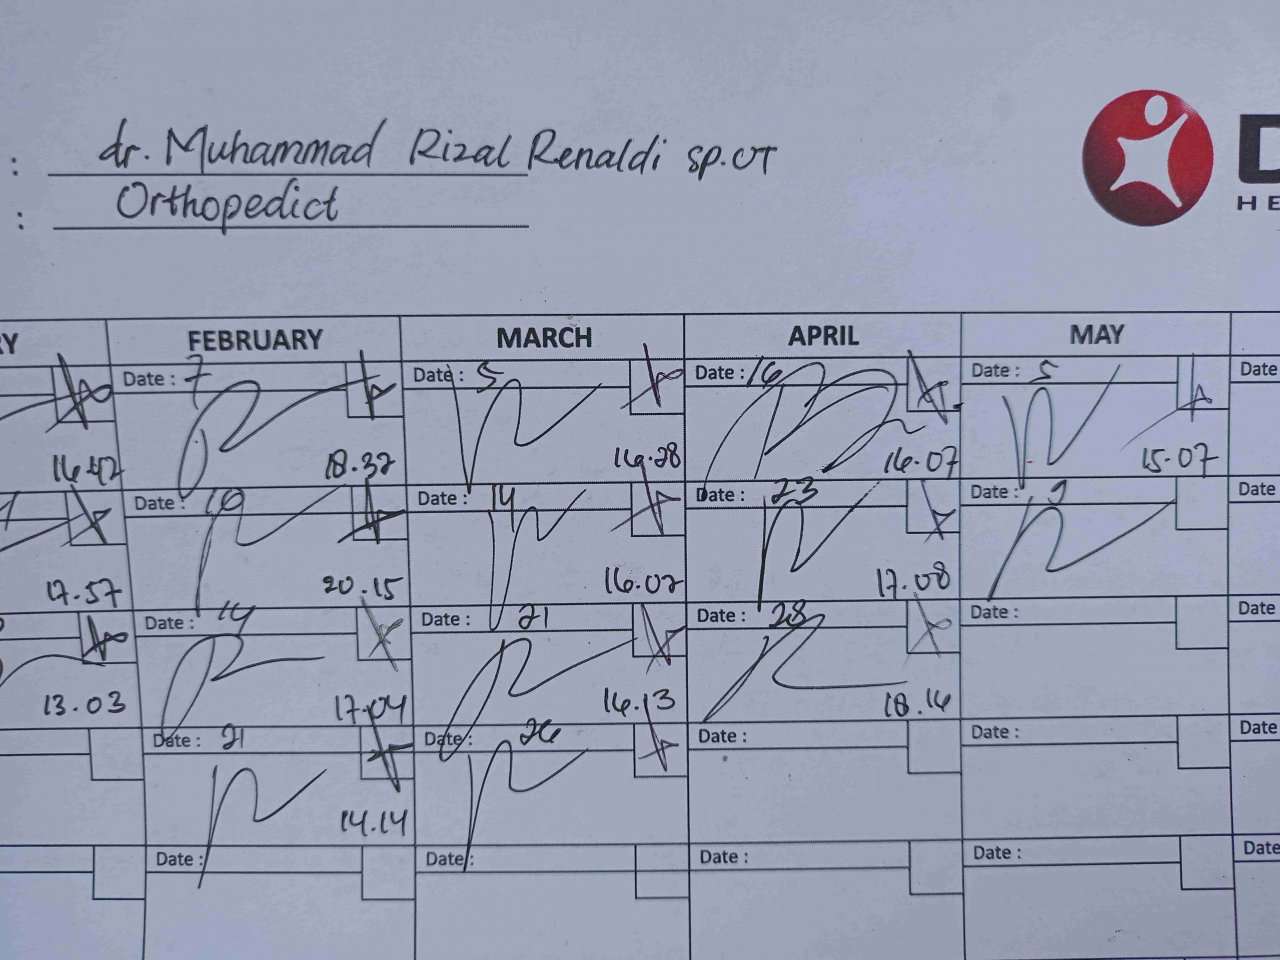 : dr. Muhammad Rizal Renaldi sp.OT
: Orthopedict
D
HE
RY FEBRUARY MARCH APRIL MAY
Date : 7 Date : 5 Date : 16 Date : 5 Date
16.42 18.32 16.28 16.07 15.07
Date : 10 Date : 14 Date : 23 Date : 9 Date
17.57 20.15 16.02 17.08
Date : 14 Date : 21 Date : 28 Date : Date
13.03 17.04 16.13 18.16
Date : 21 Date : 26 Date : Date : Date
14.14
Date : Date : Date : Date : Date